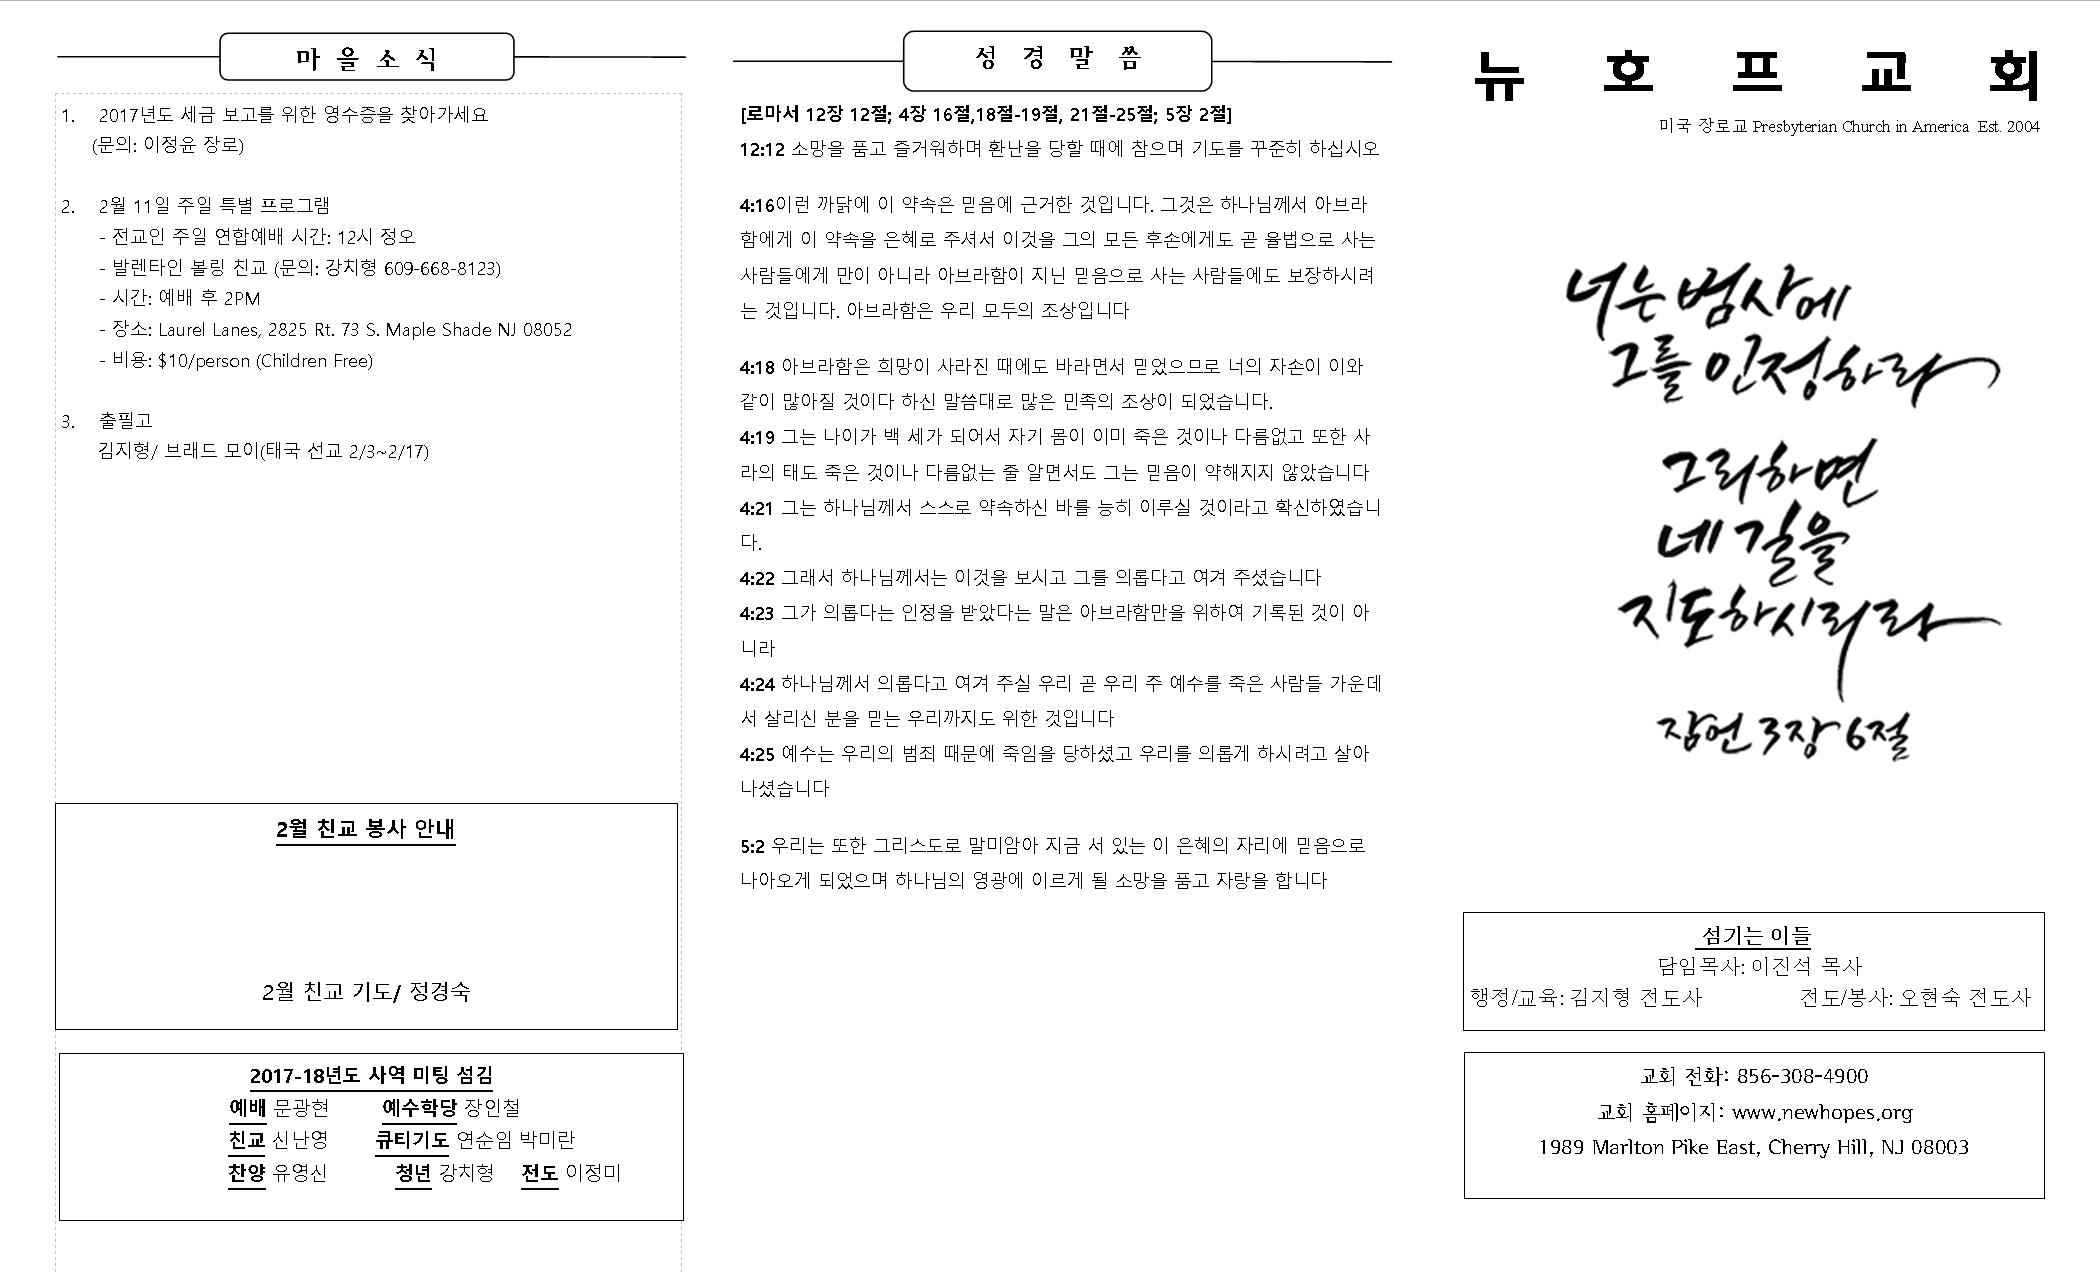 마 을 소 식
1. 2017년도 세금 보고를 위한 영수증을 찾아가세요
(문의: 이정윤 장로)
2. 2월 11일 주일 특별 프로그램
- 전교인 주일 연합예배 시간: 12시 정오
- 발렌타인 볼링 친교 (문의: 강치형 609-668-8123)
- 시간: 예배 후 2PM
- 장소: Laurel Lanes, 2825 Rt. 73 S. Maple Shade NJ 08052
- 비용: $10/person (Children Free)
3. 출필고
김지형/ 브래드 모이(태국 선교 2/3~2/17)
2월 친교 봉사 안내
2월 친교 기도/ 정경숙
2017-18년도 사역 미팅 섬김
예배 문광현 예수학당 장인철
친교 신난영 큐티기도 연순임 박미란
찬양 유영신 청년 강치형 전도 이정미
성 경 말 씀
[로마서 12장 12절; 4장 16절,18절-19절, 21절-25절; 5장 2절]
12:12 소망을 품고 즐거워하며 환난을 당할 때에 참으며 기도를 꾸준히 하십시오
4:16이런 까닭에 이 약속은 믿음에 근거한 것입니다. 그것은 하나님께서 아브라
함에게 이 약속을 은혜로 주셔서 이것을 그의 모든 후손에게도 곧 율법으로 사는
사람들에게 만이 아니라 아브라함이 지닌 믿음으로 사는 사람들에도 보장하시려
는 것입니다. 아브라함은 우리 모두의 조상입니다
4:18 아브라함은 희망이 사라진 때에도 바라면서 믿었으므로 너의 자손이 이와
같이 많아질 것이다 하신 말씀대로 많은 민족의 조상이 되었습니다.
4:19 그는 나이가 백 세가 되어서 자기 몸이 이미 죽은 것이나 다름없고 또한 사
라의 태도 죽은 것이나 다름없는 줄 알면서도 그는 믿음이 약해지지 않았습니다
4:21 그는 하나님께서 스스로 약속하신 바를 능히 이루실 것이라고 확신하였습니
다.
4:22 그래서 하나님께서는 이것을 보시고 그를 의롭다고 여겨 주셨습니다
4:23 그가 의롭다는 인정을 받았다는 말은 아브라함만을 위하여 기록된 것이 아
니라
4:24 하나님께서 의롭다고 여겨 주실 우리 곧 우리 주 예수를 죽은 사람들 가운데
서 살리신 분을 믿는 우리까지도 위한 것입니다
4:25 예수는 우리의 범죄 때문에 죽임을 당하셨고 우리를 의롭게 하시려고 살아
나셨습니다
5:2 우리는 또한 그리스도로 말미암아 지금 서 있는 이 은혜의 자리에 믿음으로
나아오게 되었으며 하나님의 영광에 이르게 될 소망을 품고 자랑을 합니다
뉴 호 프 교 회
미국 장로교 Presbyterian Church in America Est. 2004
너는 범사에
그를 인정하라
그리하면
네 길을
지도하시리라
잠언 3장 6절
섬기는 이들
담임목사: 이진석 목사
행정/교육: 김지형 전도사 전도/봉사: 오현숙 전도사
교회 전화: 856-308-4900
교회 홈페이지: www.newhopes.org
1989 Marlton Pike East, Cherry Hill, NJ 08003